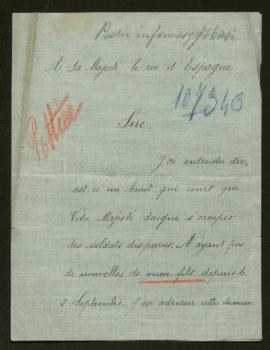 Pedir informes y
A Sa Majesté le roi d'Espagne
107340
Sire,
J'ai entendu dire,
est-ce un bruit qui court que
Votre Majesté daigne s'occuper
des soldats disparus. N'ayant pas
de nouvelles de mon fils depuis le
2 Septembre j'ose adresser cette deman